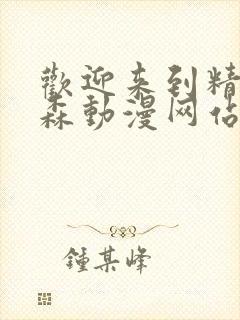 歡迎来到精
森動漫网佔
鍾某峰